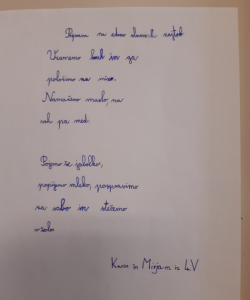 na slamah zajtrk
Vzamemo kruh in ga
položimo na mizo.
Namažemo maslo, na
vrh pa med.
Pojemo še jabolko,
popijemo mleko, pospravimo
za sabo in stečemo
v šolo.
in Mirjam iz 4.V